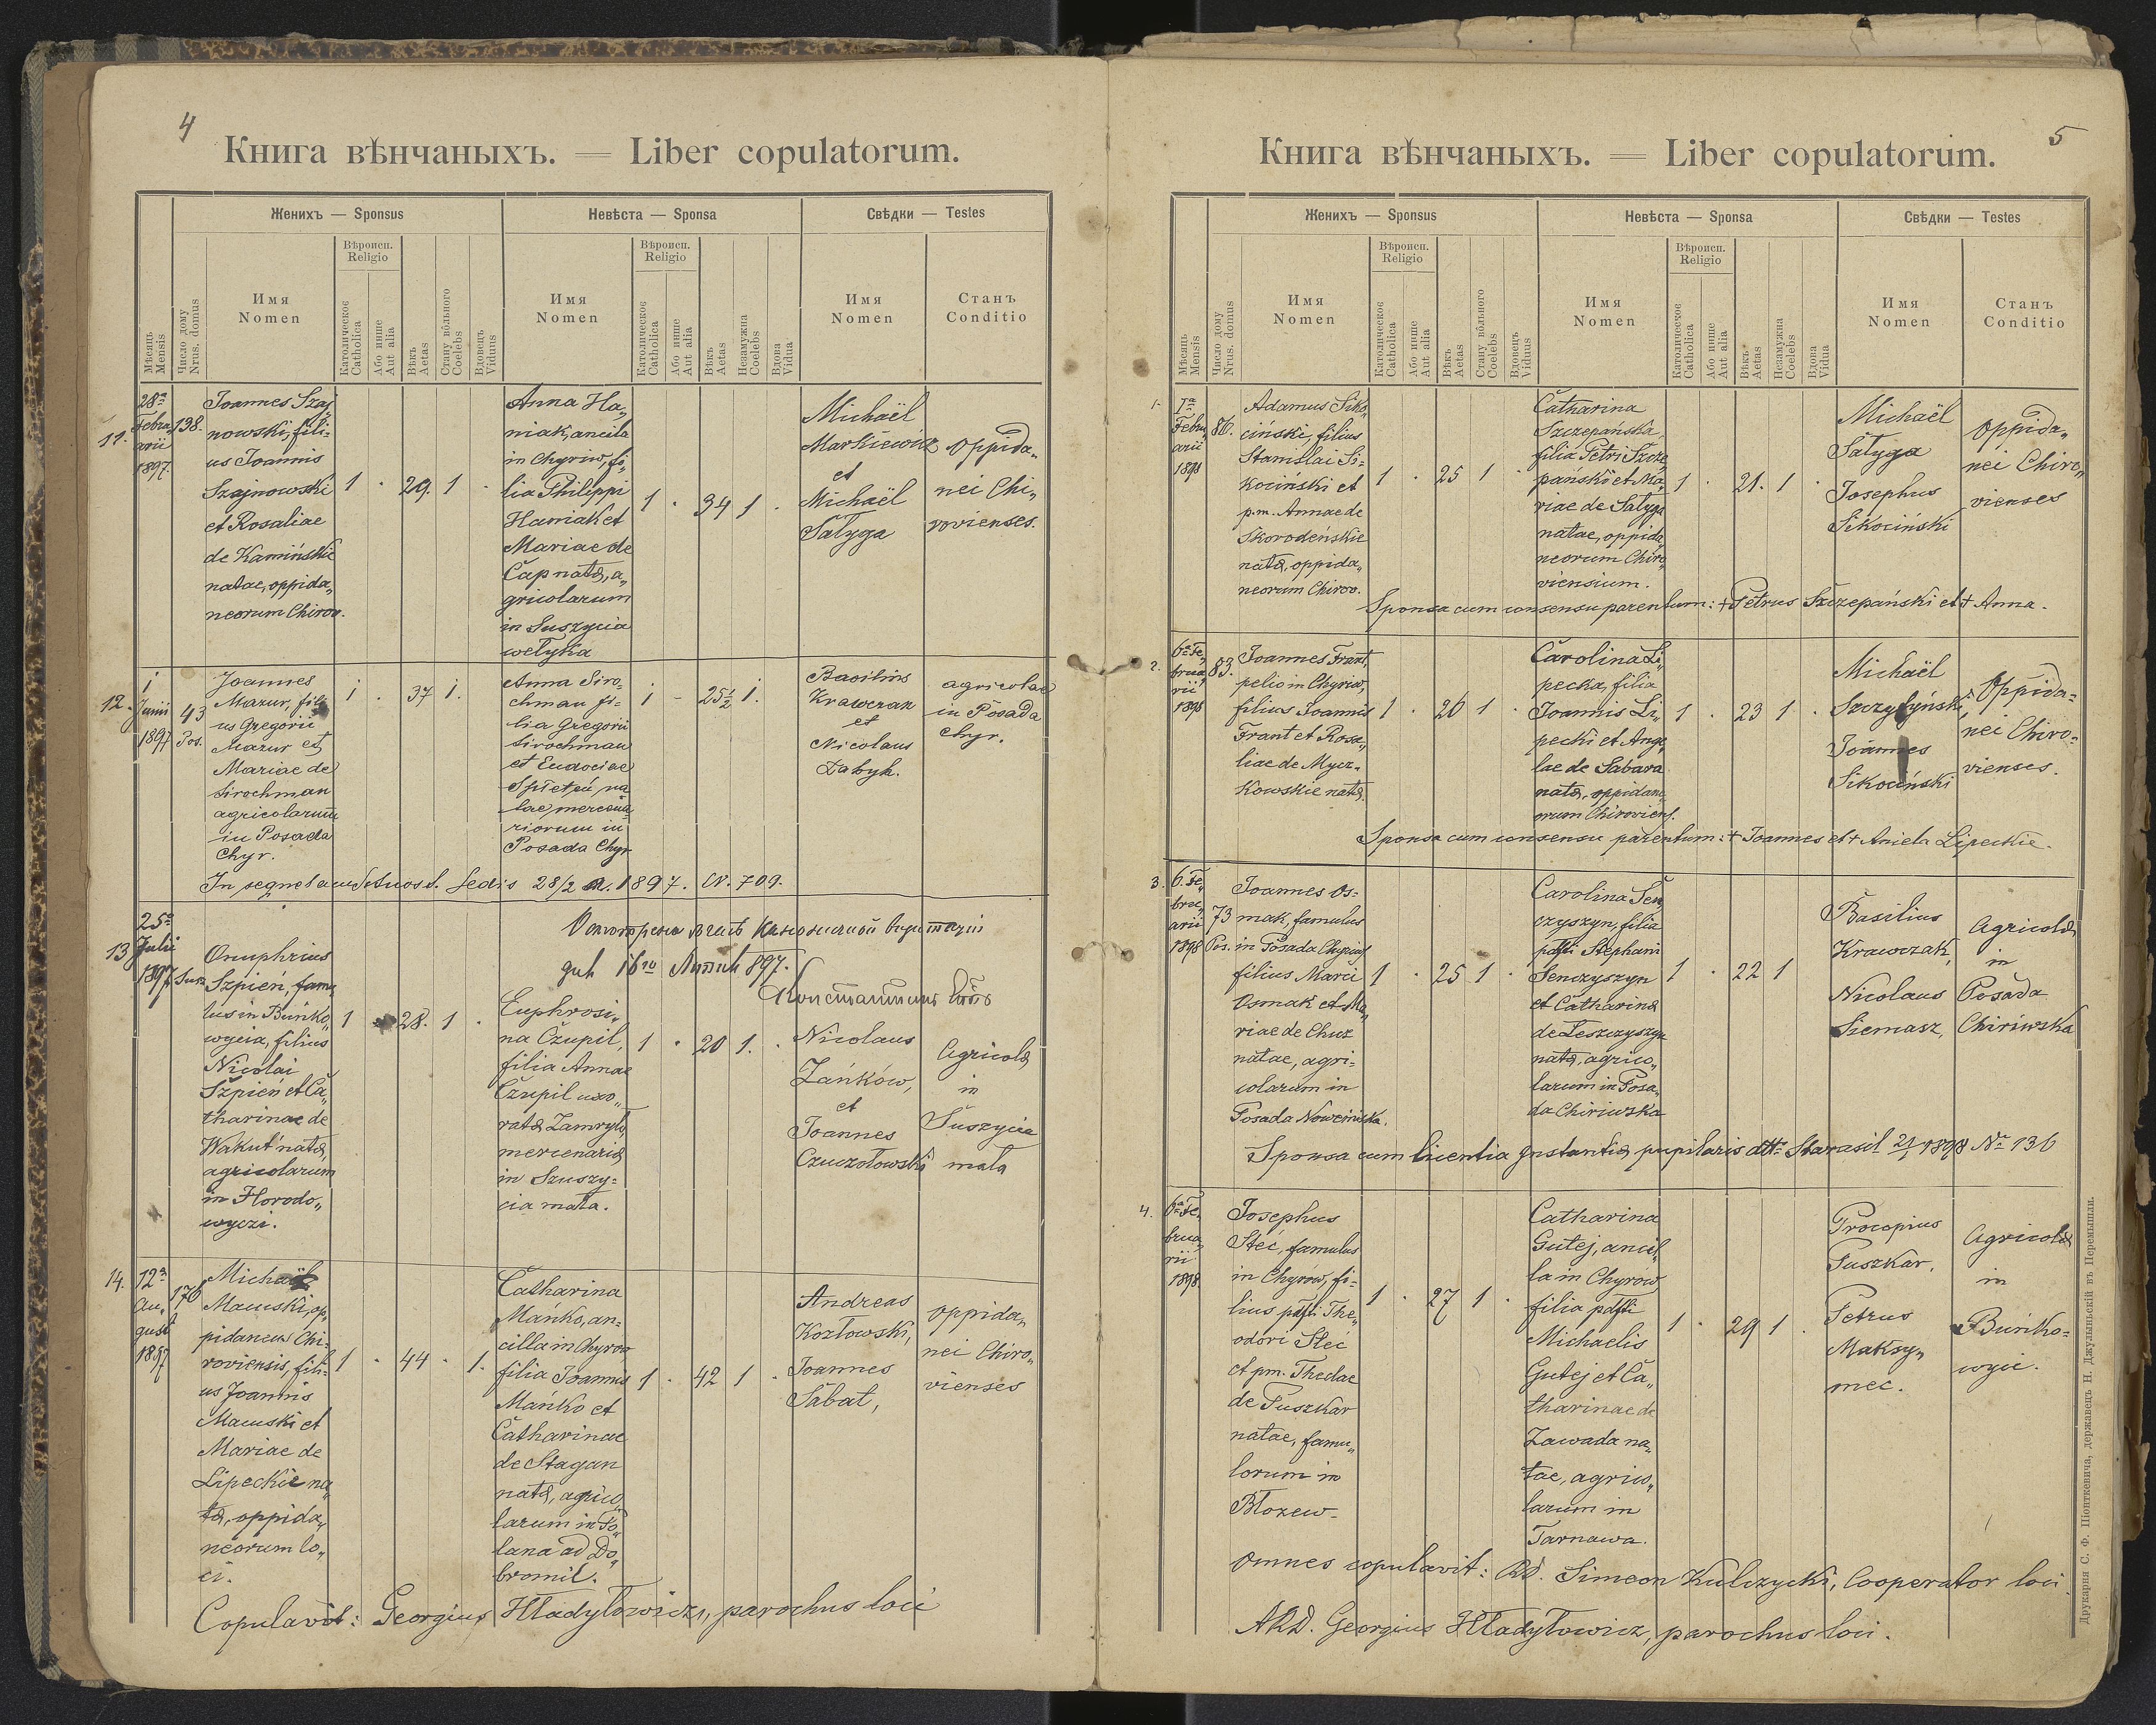 4
Книга вѣнчаныхъ. — Liber copulatorum.
Женихъ — Sponsus
Невѣста — Sponsa
Свѣдки — Testes
Мѣсяць
Mensis
Число дому
Nrus. domus
Имя
Nomen
Вѣроисп.
Religio
Католическое
Catholica
Або инше
Aut alia
Вѣкъ
Aetas
Стану вôльного
Coelebs
Вдовець
Viduus
Имя
Nomen
Вѣроисп.
Religio
Католическое
Catholica
Або инше
Aut alia
Вѣкъ
Aetas
Незамужна
Coelebs
Вдова
Vidua
Имя
Nomen
Станъ
Conditio
11.
28ª
Febru„
arii
1897.
138.
Joannes Szaj„
nowski, fili=
us Joannis
Szajnowski
et Rosaliae
de Kamińskie
natae, oppida„
neorum Chirov.
1 · 29. 1 ·
Anna Ha„
niak, ancila
in Chyriw, fi„
lia Philippi
Haniak et
Mariae de
Cap nata, a„
gricolarum
in Suszycia
wełyka
1 · 34 1 ·
Michaël
Markiewicz
et
Michaël
Sałyga
oppida„
nei Chi„
rovienses.
12.
1
Junii
1897
43
Pos.
Joannes
Mazur, fili
us Gregorii
Mazur et
Mariae de
Sirochman
agricolarum
in Posada
Chyr.
1 . 37 1.
Anna Siro„
chman fi=
lia Gregorii
Sirochman
et Eudociae
na
tae, mercena
riorum in
Posada Chyr
1 - 25½ 1.
Basilius
Krawczak
et
Nicolaus
agricolae
in Posada
Chyr.
Sedis 28/2 1897. N. 709.
13
25ª
Julii
1897
Onuphrius
Szpień, famu
lus in Buńko„
wycia, filius
Nicolai
Szpień et Ca„
tharinae de
Wakut nata,
agricolarum
in Horodo„
wyczi.
1 28. 1 ·
897.
Euphrosi„
na Czupil,
filia Annae
Czupil uxo„
rata Zamryło,
mercenaria
in Szuszy=
cia mała.
1 · 20 1. ·
Nicolaus
Zańków,
et
Joannes
Czuczołowski
Agricolae
in
Suszycia
mała
14.
12ª
Au„
gust
1897
176
Michaël
Macuski, op„
pidaneus Chi=
roviensis, fili=
us Joannis
Macuski et
Mariae de
Lipeckie na„
ta, oppida„
neorum lo„
ci.
1 · 44 · 1.
Catharina
Mańko, an=
cilla in Chyrow
filia Joannis
Mańko et
Catharinae
de Stagan
nata, agrico„
larum in Po„
lana ad Do„
bromil.
1 · 42 1 ·
Andreas
Kozłowski,
Joannes
Sabat,
oppida„
nei Chiro„
vienses
Copulavit: Georgius Hładyłowicz, parochus loci
5
Книга вѣнчаныхъ. — Liber copulatorum.
Женихъ — Sponsus
Невѣста — Sponsa
Свѣдки — Testes
Мѣсяць
Mensis
Число дому
Nrus. domus
Имя
Nomen
Вѣроисп.
Religio
Католическое
Catholica
Або инше
Aut alia
Вѣкъ
Aetas
Стану вôльного
Coelebs
Вдовець
Viduus
Имя
Nomen
Вѣроисп.
Religio
Католическое
Catholica
Або инше
Aut alia
Вѣкъ
Aetas
Незамужна
Coelebs
Вдова
Vidua
Имя
Nomen
Станъ
Conditio
1.
1ª
Febru„
arii
1898
86.
Adamus Siko„
ciński, filius
Stanislai Si=
kociński et
p.m. Annae de
Skorodeńskie
nata, oppida„
neorum Chirov.
1 · 25 1 ·
Catharina
Szczepańska,
filia Petri Szcze„
pański et Ma„
riae de Sałyga
natae, oppida„
neorum Chiro„
viensium.
1 · 21. 1 ·
Michaël
Sałyga
Josephus
Sikociński
Oppida„
nei Chiro„
vienses
Sponsa cum consensu parentum: + Petrus Szczepański et + Anna.
2.
6ª Fe„
brua„
rii
1898
83.
Joannes Frant,
pelio in Chyriw,
filius Joannis
Frant et Rosa„
liae de Mycz„
kowskie nata.
1 · 26 1 ·
Carolina Li„
pecka, filia
Joannis Li„
pecki et Ange„
lae de Sabara
nata, oppidane„
orum Chiroviens.
1 · 23 1 ·
Michaël
Szczyłyński,
Joannes
Sikociński
Oppida=
nei Chiro=
vienses.
Sponsa cum consensu parentum: + Joannes et + Aniela Lipeckie.
3.
6. Fe„
bru„
arii
1898
73
Pos.
Joannes Os=
mak, famulus
in Posada Chyrivs.
filius Marci
Osmak et Ma„
riae de Chuz
natae, agri=
colarum in
Posada Nowomiska.
1 · 25 1 ·
Carolina Sen„
czyszyn, filia
Stephani
Senczyszyn
et Catharina
de Leszczyszyn
nata, agrico„
larum in Posa„
da Chiriwska
1 · 22 1
Basilius
Krawczak,
Nicolaus
Siemasz,
Agricolae
in
Posada
Chiriwska
Sponsa cum licentia Instantia pupilaris dtto Starasil 21/1 1898 Nº 136
4.
6ª Fe„
brua„
rii
1898.
Josephus
Steć, famulus
in Chyrów, fi=
lius The„
odori Steć
et pm. Theclae
de Puszkar
natae, famu„
lorum in
Błozew-
1 · 27 1 ·
Catharina
Gutej, ancil„
la in Chyrów
filia
Michaelis
Gutej et Ca„
tharinae de
Zawada na„
tae, agrico„
larum in
Tarnawa.
1 · 29 1 .
Procopius
Puszkar,
Petrus
Maksy„
mec.
Agricolae
in
Buńko=
wyie.
Omnes copulavit: RD. Simeon Kulczycki, Cooperator loci.
ARD. Georgius Hładyłowicz, parochus loci.
Друкарня С. Ф. Піонткевича, державець Н. Джулыньскій въ Перемышли.